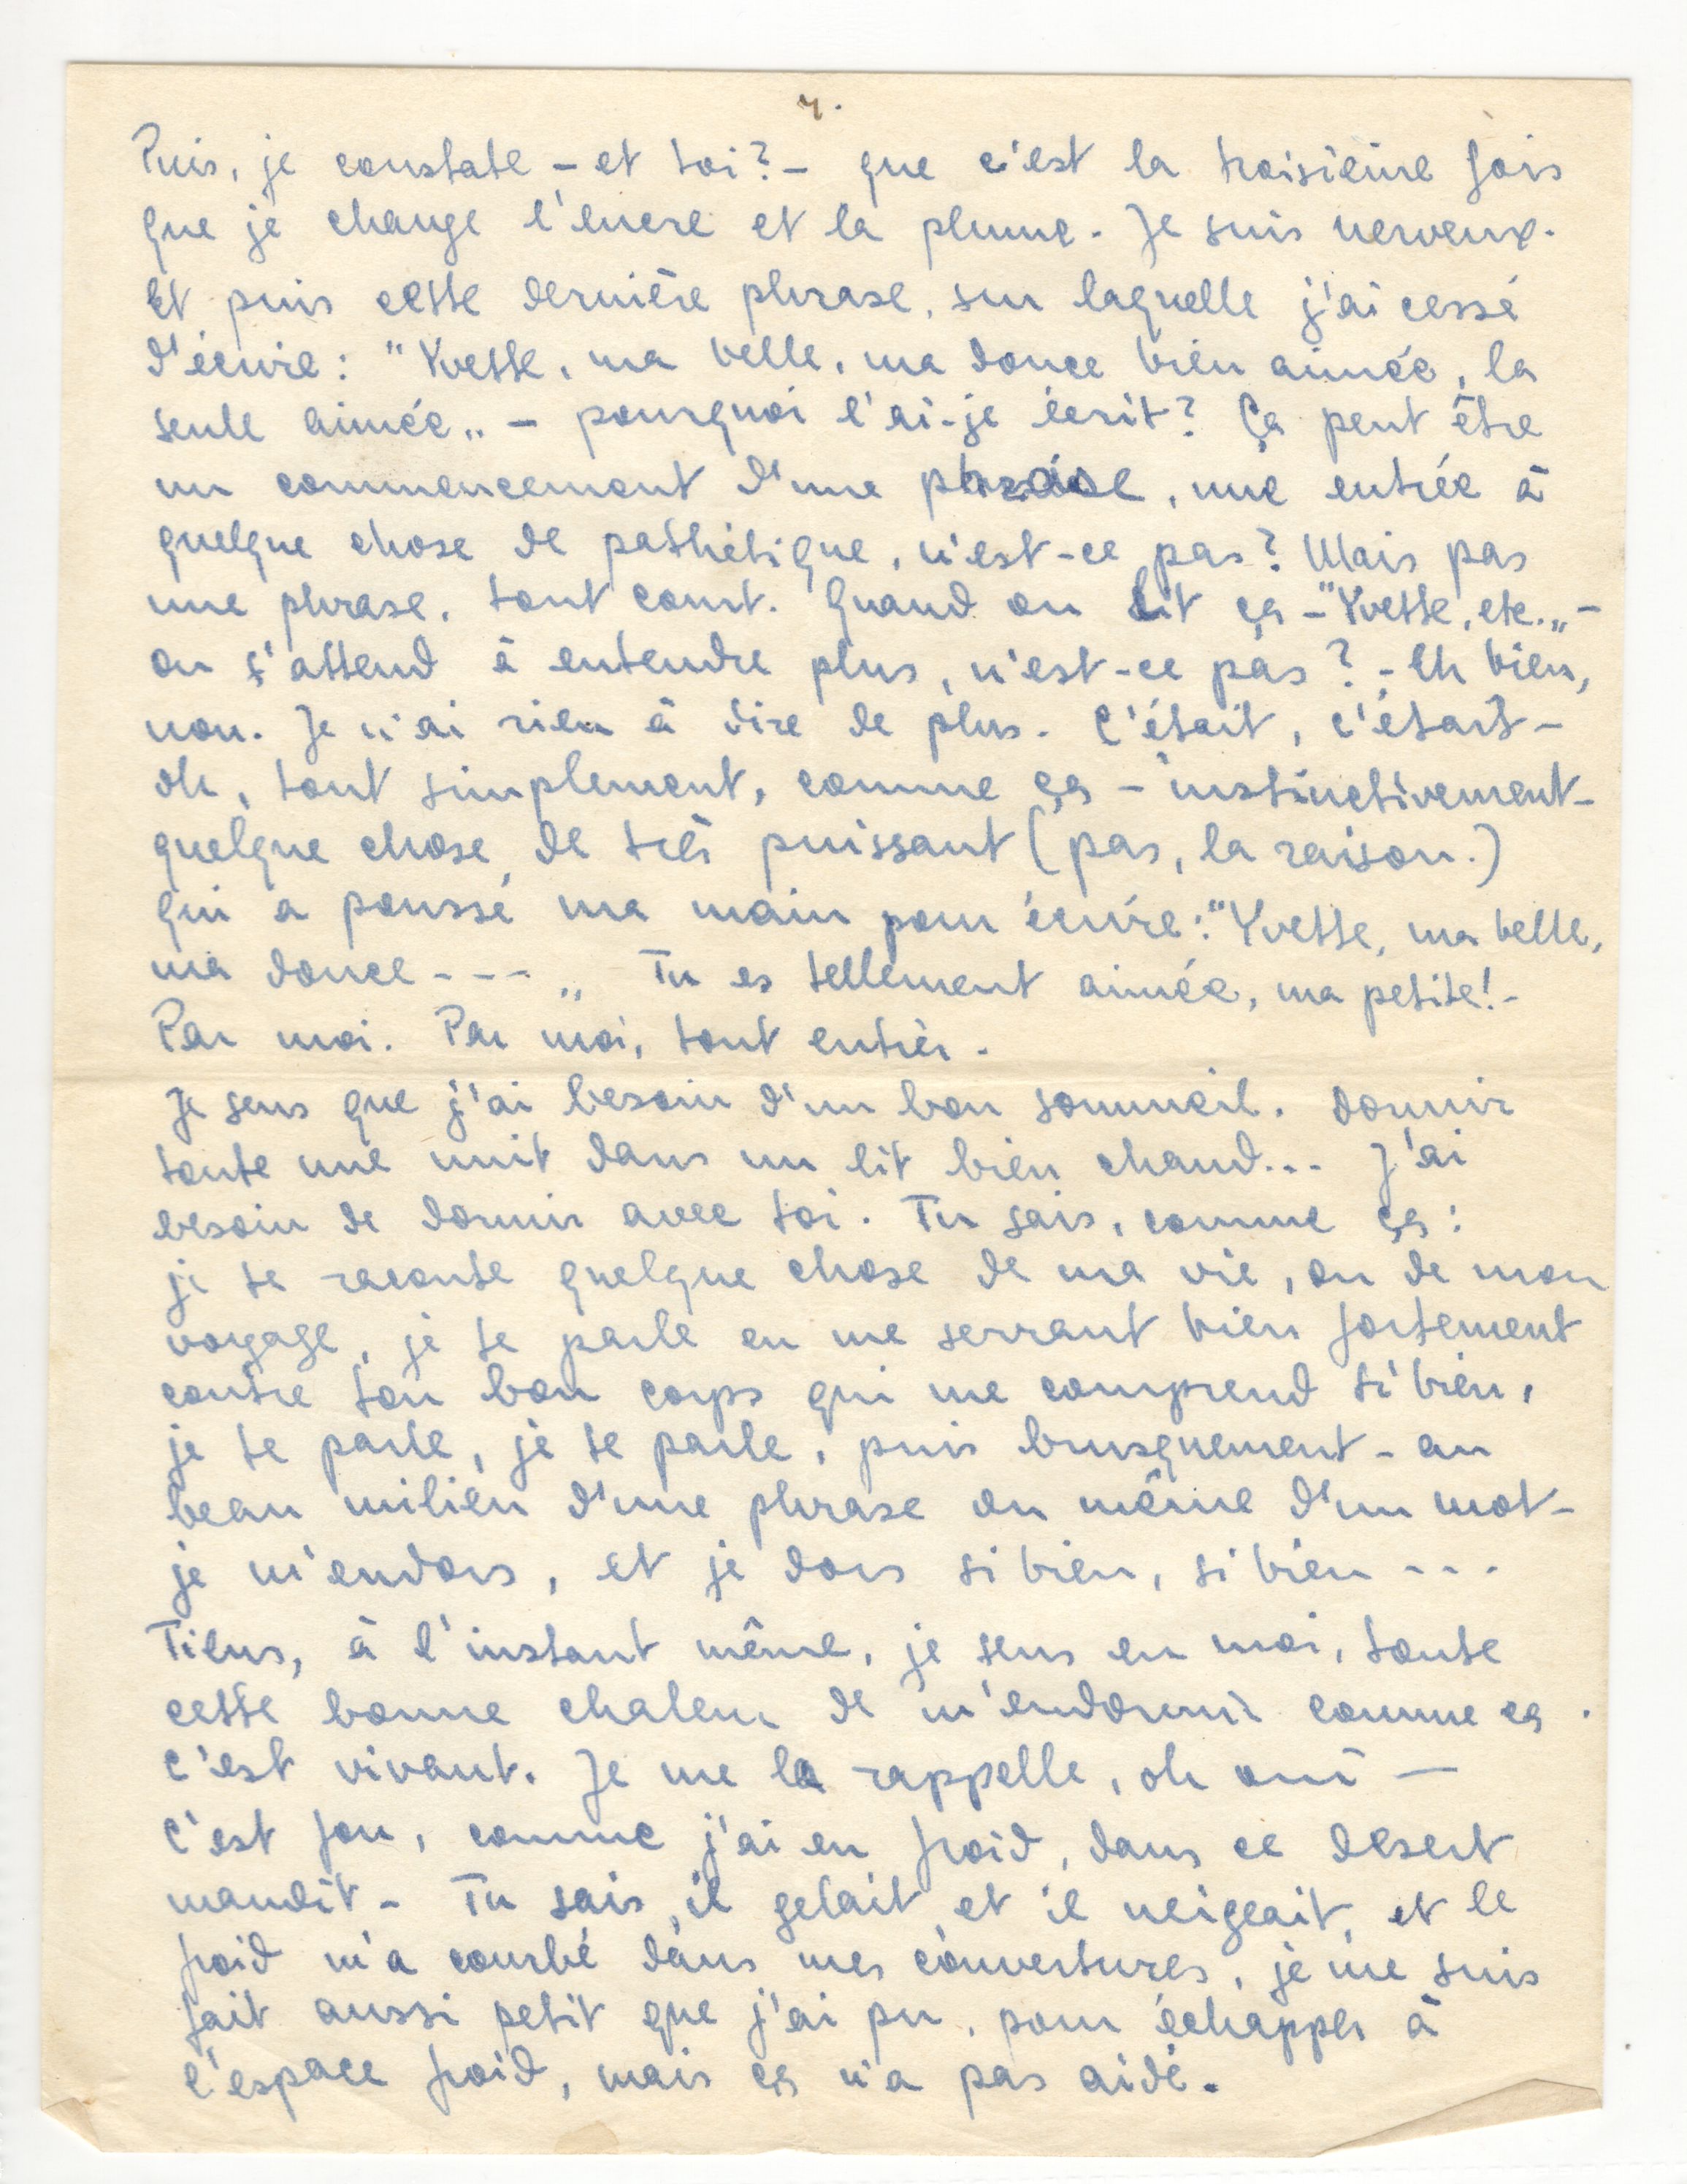 4.
Puis, je constate – et toi? – que c'est la troisième fois
que je change l'encre et la plume. Je suis nerveux.
Et puis cette dernière phrase, sur laquelle j'ai cessé
d'écrire: "Yvette, ma belle, ma douce bien aimée, la
seule aimée„ – pourquoi l'ai-je écrit? Ça peut être
un commencement d'une phrase, une entrée à
quelque chose de pathétique, n'est-ce pas? Mais pas
une phrase, tout court. Quand on lit ça – "Yvette, etc.„ –
on s'attend à entendre plus, n'est-ce pas? – Eh bien,
non. Je n'ai rien à dire de plus. C'était, c'était –
oh, tout simplement, comme ça – instinctivement –
quelque chose de très puissant (pas, la raison.)
qui a poussé ma main pour écrire: "Yvette, ma belle,
ma douce - - - „ Tu es tellement aimée, ma petite! –
Par moi. Par moi, tout entier.
Je sens que j'ai besoin d'un bon sommeil. Dormir
toute une nuit dans un lit bien chaud... J'ai
besoin de dormir avec toi. Tu sais, comme ça:
je te raconte quelque chose de ma vie, ou de mon
voyage, je te parle en me serrant bien fortement
contre ton bon corps qui me comprend si bien,
je te parle, je te parle, puis brusquement – au
beau milieu d'une phrase ou même d'un mot –
je m'endors, et je dors si bien, si bien - - -
Tiens, à l'instant même, je sens en moi, toute
cette bonne chaleur de m'endormir comme ça.
C'est vivant. Je me la rappelle, oh oui —
C'est fou, comme j'ai eu froid, dans ce desert
maudit – Tu sais, il gelait et il neigeait, et le
froid m'a courbé dans mes couvertures, je me suis
fait aussi petit que j'ai pu, pour échapper à
l'espace froid, mais ça n'a pas aidé.